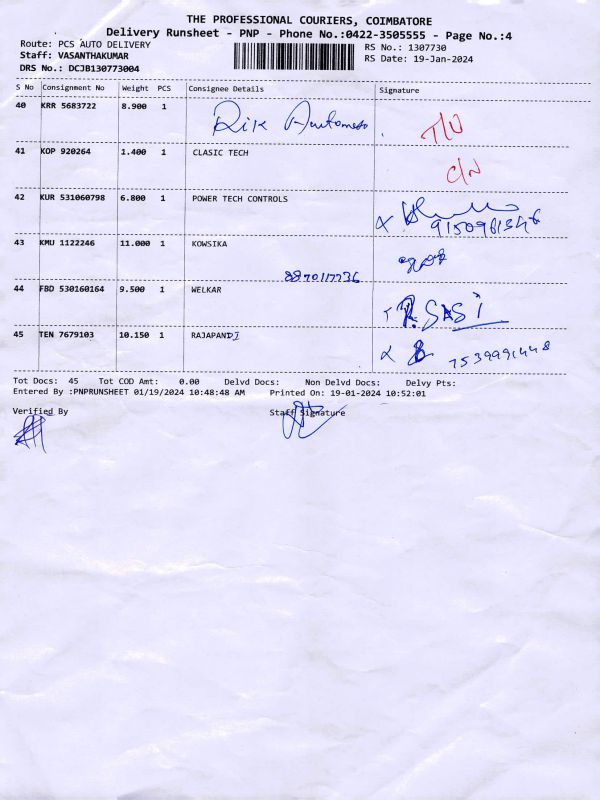 THE PROFESSIONAL COURIERS, COIMBATORE
Delivery Runsheet - PNP - Phone No.:0422-3505555 - Page No.:4
Route: PCS AUTO DELIVERY RS No.: 1307730
Staff: VASANTHAKUMAR RS Date: 19-Jan-2024
DRS No.: DCJB130773004
S No Consignment No Weight PCS Consignee Details Signature
40 KRR 5683722 8.900 1 Rik T/U
41 KOP 920264 1.400 1 CLASIC TECH C/N
42 KUR 531060798 6.800 1 POWER TECH CONTROLS
9150961346
43 KMU 1122246 11.000 1 KOWSIKA
8870117736
44 FBD 530160164 9.500 1 WELKAR SASI
45 TEN 7679103 10.150 1 RAJAPANDI
7539991448
Tot Docs: 45 Tot COD Amt: 0.00 Delvd Docs: Non Delvd Docs: Delvy Pts:
Entered By :PNPRUNSHEET 01/19/2024 10:48:48 AM Printed On: 19-01-2024 10:52:01
Verified By Staff Signature